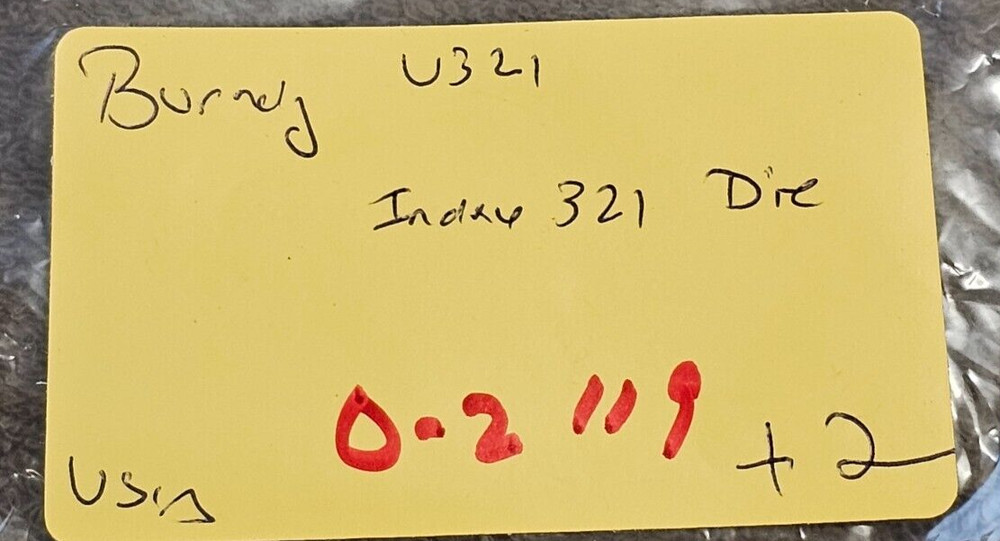 Burndy U321
Index 321 Die
0-2 119
+2